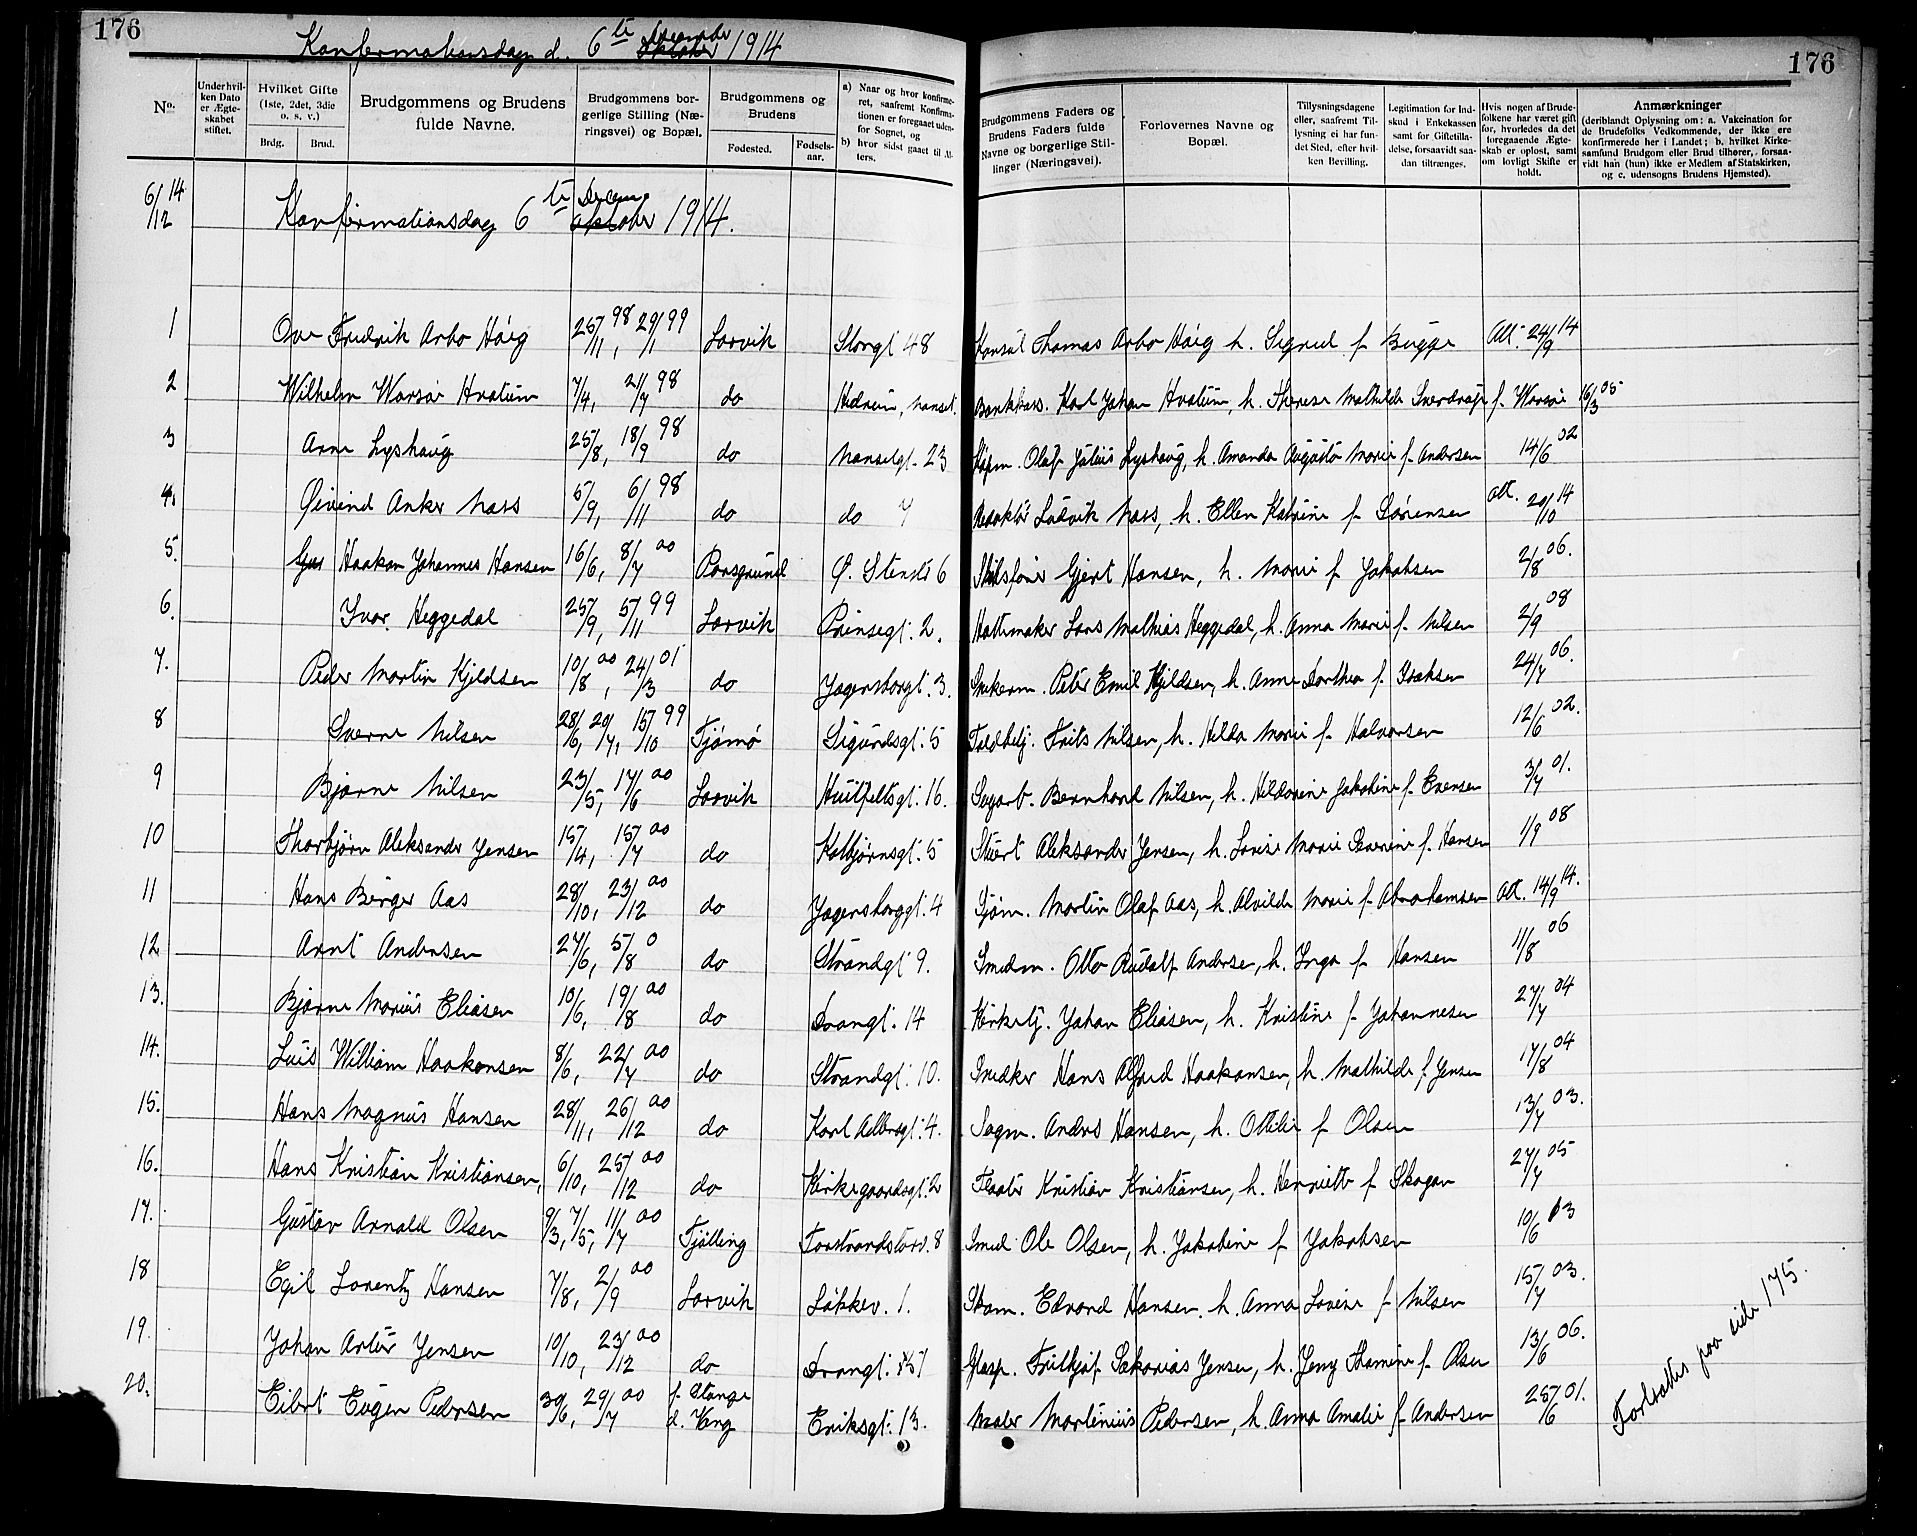 176
Konfirmationsdag d. 6te December Oktober 1914
176
No.
Under hvilken Dato er Ægteskabet stiftet.
Hvilket Gifte (1ste, 2det, 3die o. s. v.)
Brdg.
Brud.
Brudgommens og Brudens fulde Navne.
Brudgommens borgerlige Stilling (Næringsvei) og Bopæl.
Brudgommens og Brudens
Fødested.
Fødselsaar.
a) Naar og hvor konfirmeret, saafremt Konfirmationen er foregaaet udenfor Sognet, og
b) hvor sidst gaaet til Alters.
Brudgommens Faders og Brudens Faders fulde Navne og borgerlige Stillinger (Næringsvei).
Forlovernes Navne og Bopæl.
Tillysningsdagene eller, saafremt Tillysning ei har fundet Sted, efter hvilken Bevilling.
Legitimation for Indskud i Enkekassen samt for Giftetilladelse, forsaavidt saadan tiltrænges.
Hvis nogen af Brudefolkene har været gift før, hvorledes da det foregaaende Ægteskab er opløst, samt om lovligt Skifte er holdt.
Anmærkninger
(deriblandt Oplysning om: a. Vakcination for de Brudefolks Vedkommende, der ikke ere konfirmerede her i Landet; b. hvilket Kirkesamfund Brudgom eller Brud tilhører, forsaavidt han (hun) ikke er Medlem af Statskirken, og c. udensogns Brudens Hjemsted).
6/12 14 Konfirmationsdag 6te Decem oktober 1914.
1 Ove Fredrik Arbo Høeg 25/11 98, 29/1 99 Larvik Storgt 48 Konsul Thomas Arbo Høeg h. Sigrid f Bugge Att. 24/9 14
2 Wilhelm Warsøe Hvatum 7/4, 21/7 98 do Hedrum, Nanset. Bankkass. Karl Johan Hvatum, h. Therese Mathilde Sverdrup f. Warsøe 16/3 05
3 Arne Lyshaug 25/8, 18/9 98 do Nansetgt. 23 Kjøpm. Olaf Julius Lyshaug, h. Amanda Augusta Marie f. Andersen 14/6 02
4. Øivind Anker Næss 5/9, 6/11 98 do do 7 Redaktør Ludvik Næss, h. Ellen Katrine f Sørensen att. 20/10 14
5. Haakon Johannes Hansen 16/6, 8/7 00 Porsgrund Ø. Stenstr 6 Skibsfører Gjert Hansen, h. Marie f Jakobsen 2/8 06.
6. Ivar Heggedal 25/9, 5/11 99 Larvik Prinsegt. 2. Hattemaker Lars Mathias Heggedal, h. Anna Marie f. Nilsen 2/9 08
7. Peder Martin Kjeldsen 10/8 00, 24/3 01 do Jegersborgt. 3. Snekerm. Peter Emil Kjeldsen, h. Anne Dorthea f. Isaksen 24/7 06.
8 Sverre Nilsen 28/6, 20/7, 15/10 99 Tjømø Sigurdsgt. 5 Toldbetj. Frits Nilsen, h. Hilda Marie f Halvorsen 12/6 02.
9 Bjarne Nilsen 23/5, 17/6 00 Larvik Huitfeltsgt. 16. Sagarb. Bernhard Nilsen, h. Hildarine Jakobine f. Evensen 3/7 01.
10 Thorbjørn Aleksander Jensen 15/4, 15/7 00 do Kolbjørnsgt. 5 Stuert Aleksander Jensen, h. Lovise Marie Severine f. Hansen 1/9 08
11 Hans Birger Aas 28/10, 23/12 00 do Jegersborggt. 4 Sjøm. Martin Olaf Aas, h. Alvilde Marie f Abrahamsen att. 14/9 14.
12 Arnt Andersen 27/6, 5/8 0 do Strandgt 9. Smedm. Otto Rudolf Anderse, h. Inga f Hansen 11/8 06
13. Bjarne Marius Eliasen 10/6, 19/8 00 do Trangt. 14 Kirketj. Johan Eliasen, h. Kristine f Johannesen 27/7 04
14. Luis William Haakonsen 8/6, 22/7 00 do Strandgt. 10. Snedker Hans Alfred Haakonsen, h. Mathilde f. Jensen 17/8 04
15. Hans Magnus Hansen 28/11, 26/12 00 do Karl Adlersgt. 4. Sagm. Anders Hansen, h. Ottilie f Olsen 13/7 03.
16. Hans Kristian Kristiansen, 6/10, 25/12 00 do Kirkegaardsgt. 2 Fløter Kristian Kristiansen, h. Henriette f Skogan 27/7 05
17. Gustav Arnold Olsen 9/3, 7/5, 11/7 00 Tjølling Torstrandstorv. 8 Smed Ole Olsen, h. Jakobine f Jakobsen 10/6 03
18 Egil Lorentz Hansen 7/8, 2/9 00 Larvik Løkkev. 1. Skom. Edvard Hansen h. Anna Lovise f Nilsen 15/7 03.
19. Johan Artur Jensen 10/10, 23/12 00 do Trangt. 15 Glasp. Fritkjof Sakarias Jensen, h. Jeny Thamine f. Olsen 13/6 06.
20. Eibert Eugen Pedersen 30/6, 29/7 00 f. Stange d. Vang Eriksgt. 13. Maler Martinius Pedersen, h. Anna Amalie f Andersen 25/6 01.
Fortsættes paa side 175.